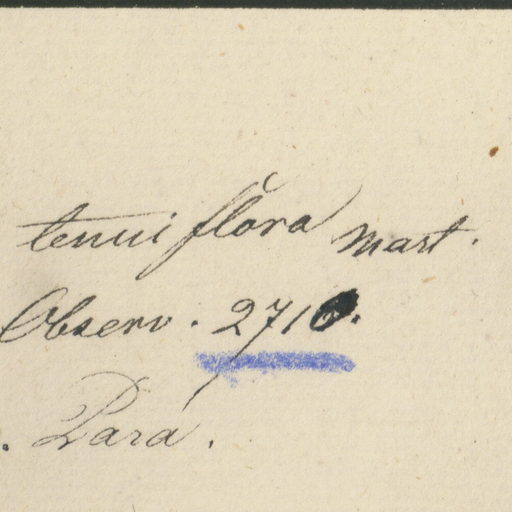 tenuiflora Mart.
Observ. 2710.
. Pará.